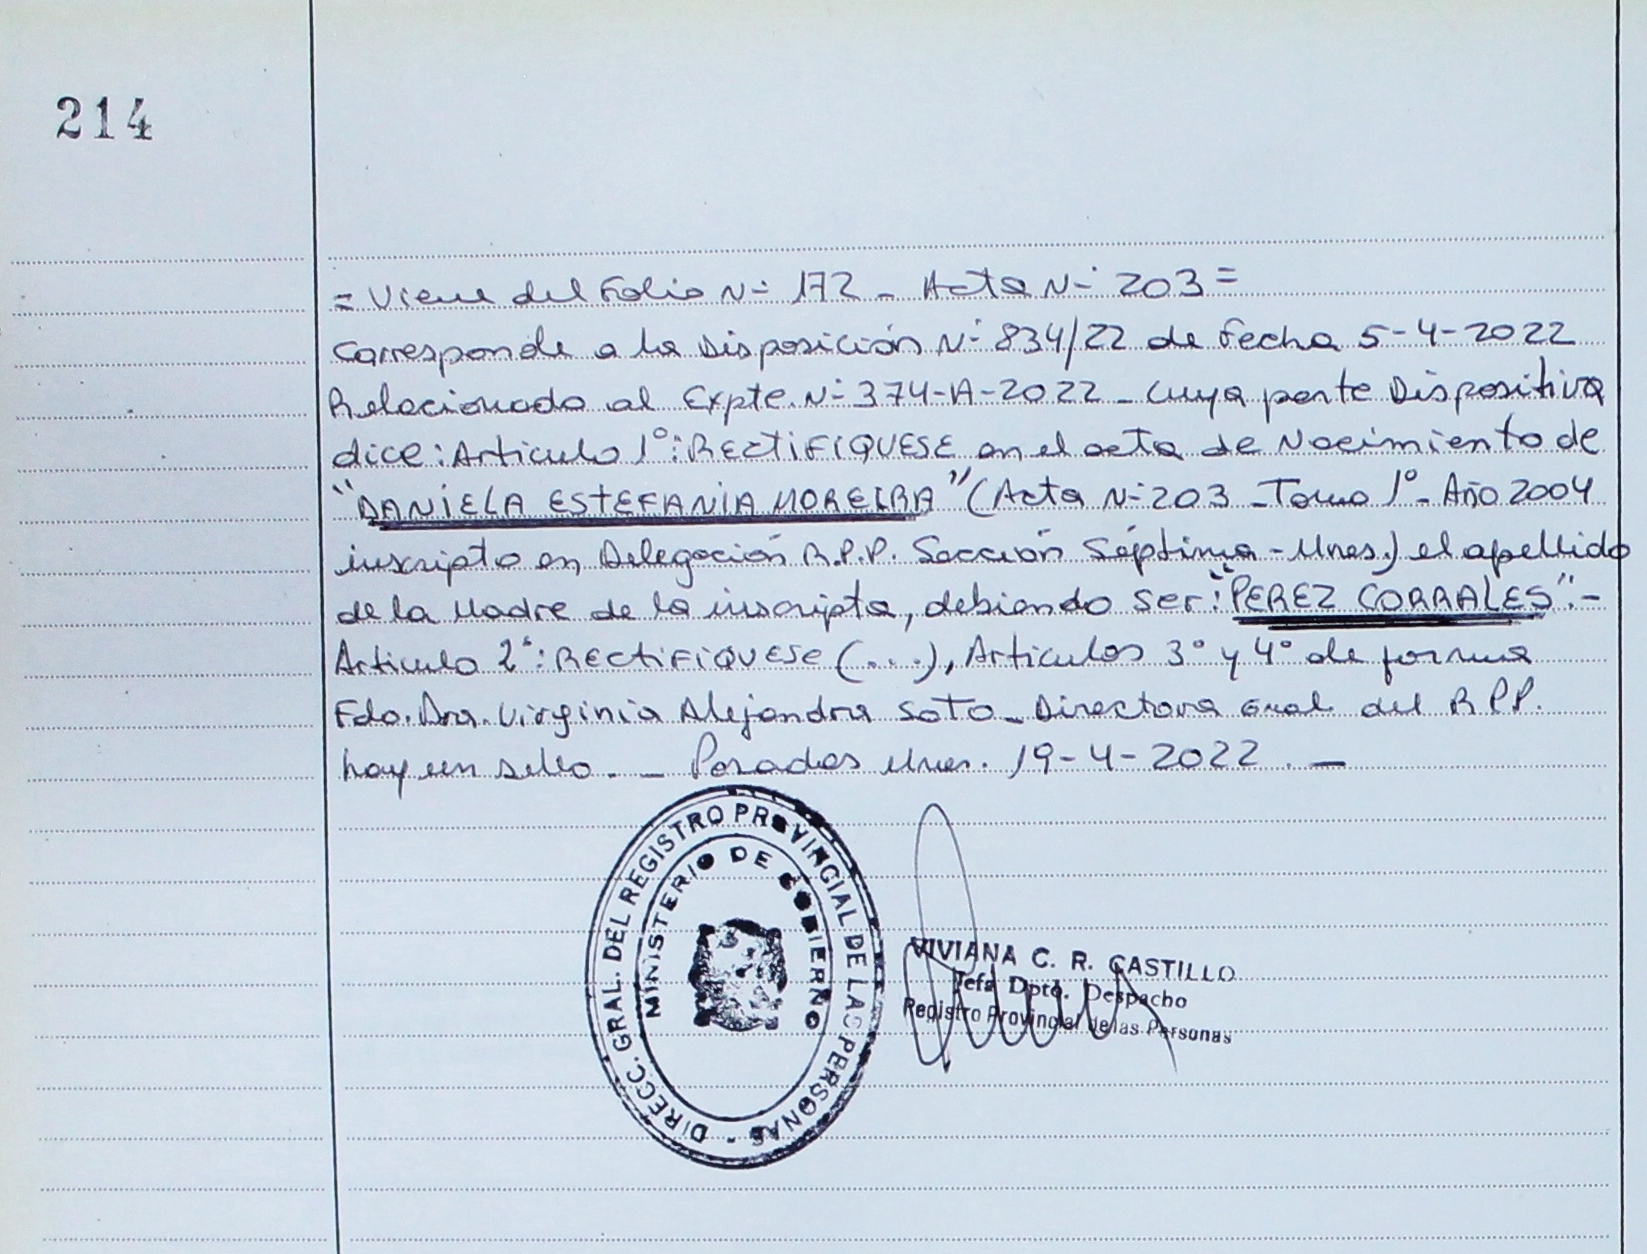 214
= Viene del Folio Nº 172 - Acta Nº 203 =
Corresponde a la Disposición Nº 834/22 de fecha 5-4-2022
Relacionado al Expte. Nº 374-A-2022 - Cuya parte Dispositiva
dice: Articulo 1º: RECTIFIQUESE en el acta de Nacimiento de
"DANIELA ESTEFANIA MOREIRA" (Acta Nº 203 - Tomo 1º - Año 2004
inscripto en Delegación R.P.P. Sección Séptima - Mnes.) el apellido
de la Madre de la inscripta, debiendo ser: "PEREZ CORRALES".-
Articulo 2º: RECTIFIQUESE (...), Articulos 3º y 4º de forma
Fdo. Dra. Virginia Alejandra Soto - Directora Gral del R.P.P.
hay un sello. - Posadas Mnes. 19-4-2022. -
DIRECC. GRAL. DEL REGISTRO PROVINCIAL DE LAS PERSONAS -
MINISTERIO DE GOBIERNO
VIVIANA C. R. CASTILLO
Jefa Dpto. Despacho
Registro Provincial de las Personas